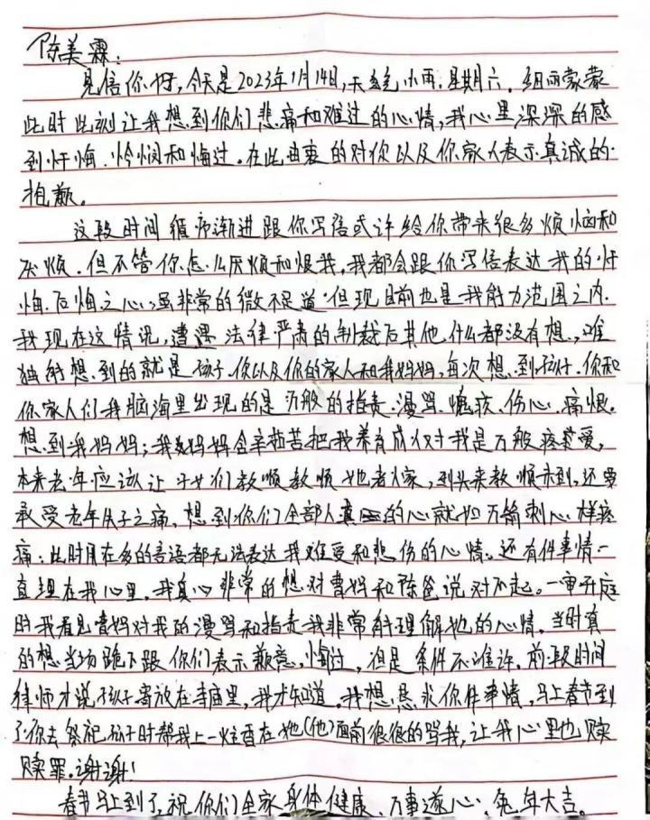 陈美霖：
见信你好，今天是2023年1月14日，天气小雨，星期六。细雨蒙蒙
此时此刻让我想到你们悲痛和难过的心情，我心里深深的感
到忏悔、怜悯和悔过。在此由衷的对你以及你家人表示真诚的
抱歉。
这段时间循序渐进跟你写信或许给你带来很多烦恼和
厌烦，但不管你怎么厌烦和恨我，我都会跟你写信表达我的忏
悔、后悔之心，虽非常的微不足道但现目前也是我能力范围之内，
我现在这情况，遭遇法律严肃的制裁后其他什么都没有想，唯
独能想到的就是孩子、你以及你的家人和我妈妈，每次想到孩子、你和
你家人们我脑海里出现的是万般的指责、漫骂、愧疚、伤心、痛恨。
想到我妈妈；我妈妈含辛茹苦把我养育成仅对我是万般疼爱，
本来老年应该让子女们孝顺孝顺她老人家，到头来孝顺未到，还要
承受老年失子之痛，想到你们全部人的心就如万箭刺心一样疼
痛；此时用在多的言语都无法表达我难受和悲伤的心情。还有件事情一
直埋在我心里，我真心非常的想对曹妈和陈爸说对不起。一审开庭
时我看见曹妈对我的漫骂和指责我非常能理解她的心情，当时真
的想当场跪下跟你们表示歉意、悔过，但是条件不准许，前段时间
律师才说孩子寄放在寺庙里，我才知道，我想恳求你件事情，马上春节到
了你去祭祀孩子时帮我上一炷香在她(他)面前很很的骂我，让我心里也赎
赎罪。谢谢！
春节马上到了，祝你们全家身体健康、万事遂心、兔年大吉。